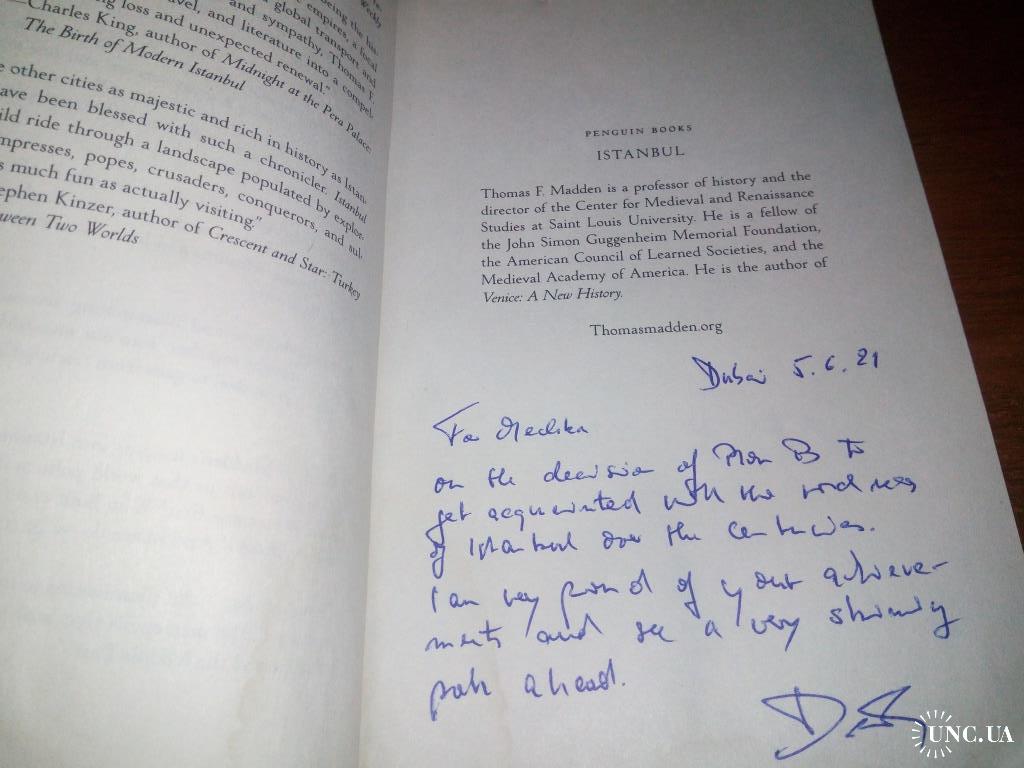 being the his-
empires, a focal
global transport and
and sympathy, Thomas F.
vel, and literature into a compel-
ng loss and unexpected renewal."
—Charles King, author of Midnight at the Pera Palace:
The Birth of Modern Istanbul
e other cities as majestic and rich in history as Istan-
ave been blessed with such a chronicler. Istanbul
ild ride through a landscape populated by explor-
mpresses, popes, crusaders, conquerors, and sul-
s much fun as actually visiting."
ephen Kinzer, author of Crescent and Star: Turkey
ween Two Worlds
PENGUIN BOOKS
ISTANBUL
Thomas F. Madden is a professor of history and the
director of the Center for Medieval and Renaissance
Studies at Saint Louis University. He is a fellow of
the John Simon Guggenheim Memorial Foundation,
the American Council of Learned Societies, and the
Medieval Academy of America. He is the author of
Venice: A New History.
Thomasmadden.org
Dubai 5.6.21
For
on the decision of B to
get acquainted with the
of Istanbul over the centuries.
I am very proud of your achieve-
ments and see a very shining
path ahead.
UNC.UA